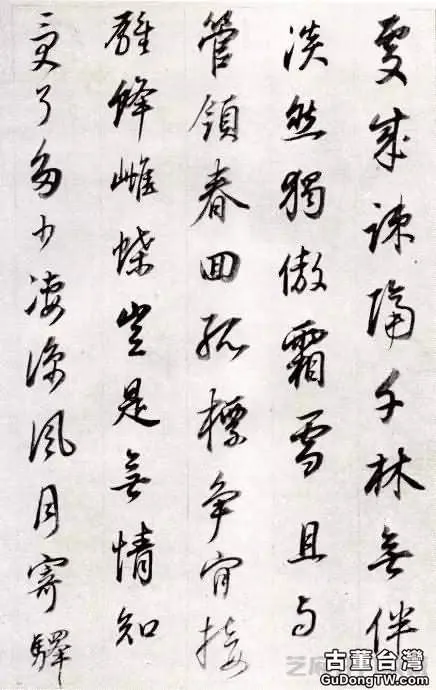 處成疎隔千林無伴
淡然獨傲霜雪且与
管領春回孤標争肯接
雄蜂雌蝶豈是無情知
受了多少凄凉風月寄驛
古董台灣
GuDongTW.com